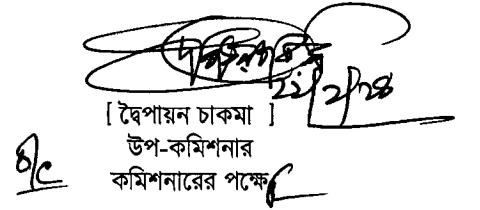 ২২/২/২৪
[ দ্বৈপায়ন চাকমা ]
উপ-কমিশনার
কমিশনারের পক্ষে